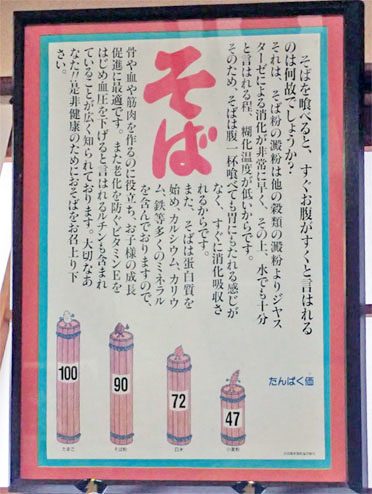 そば
そばを喰べると、すぐお腹がすくと言はれる
のは何故でしょうか?
それは、そば粉の澱粉は他の穀類の澱粉よりジヤス
ターゼによる消化が非常に早く、その上、水でも十分
と言はれる程、糊化温度が低いからです。
そのため、そばは腹一杯喰べても胃にもたれる感じが
なく、すぐに消化吸収さ
れるからです。
また、そばは蛋白質を
始め、カルシウム、カリウ
ム、鉄等多くのミネラル
を含んでおりますので、
骨や血や筋肉を作るのに役立ち、お子様の成長
促進に最適です。また老化を防ぐビタミンEを
はじめ血圧を下げると言はれるルチンも含まれ
ていることが広く知られております。大切なあ
なた!!是非健康のためにおそばをお召上り下
さい。
たんぱく価
100
90
72
47
たまご
そば粉
白米
小麦粉